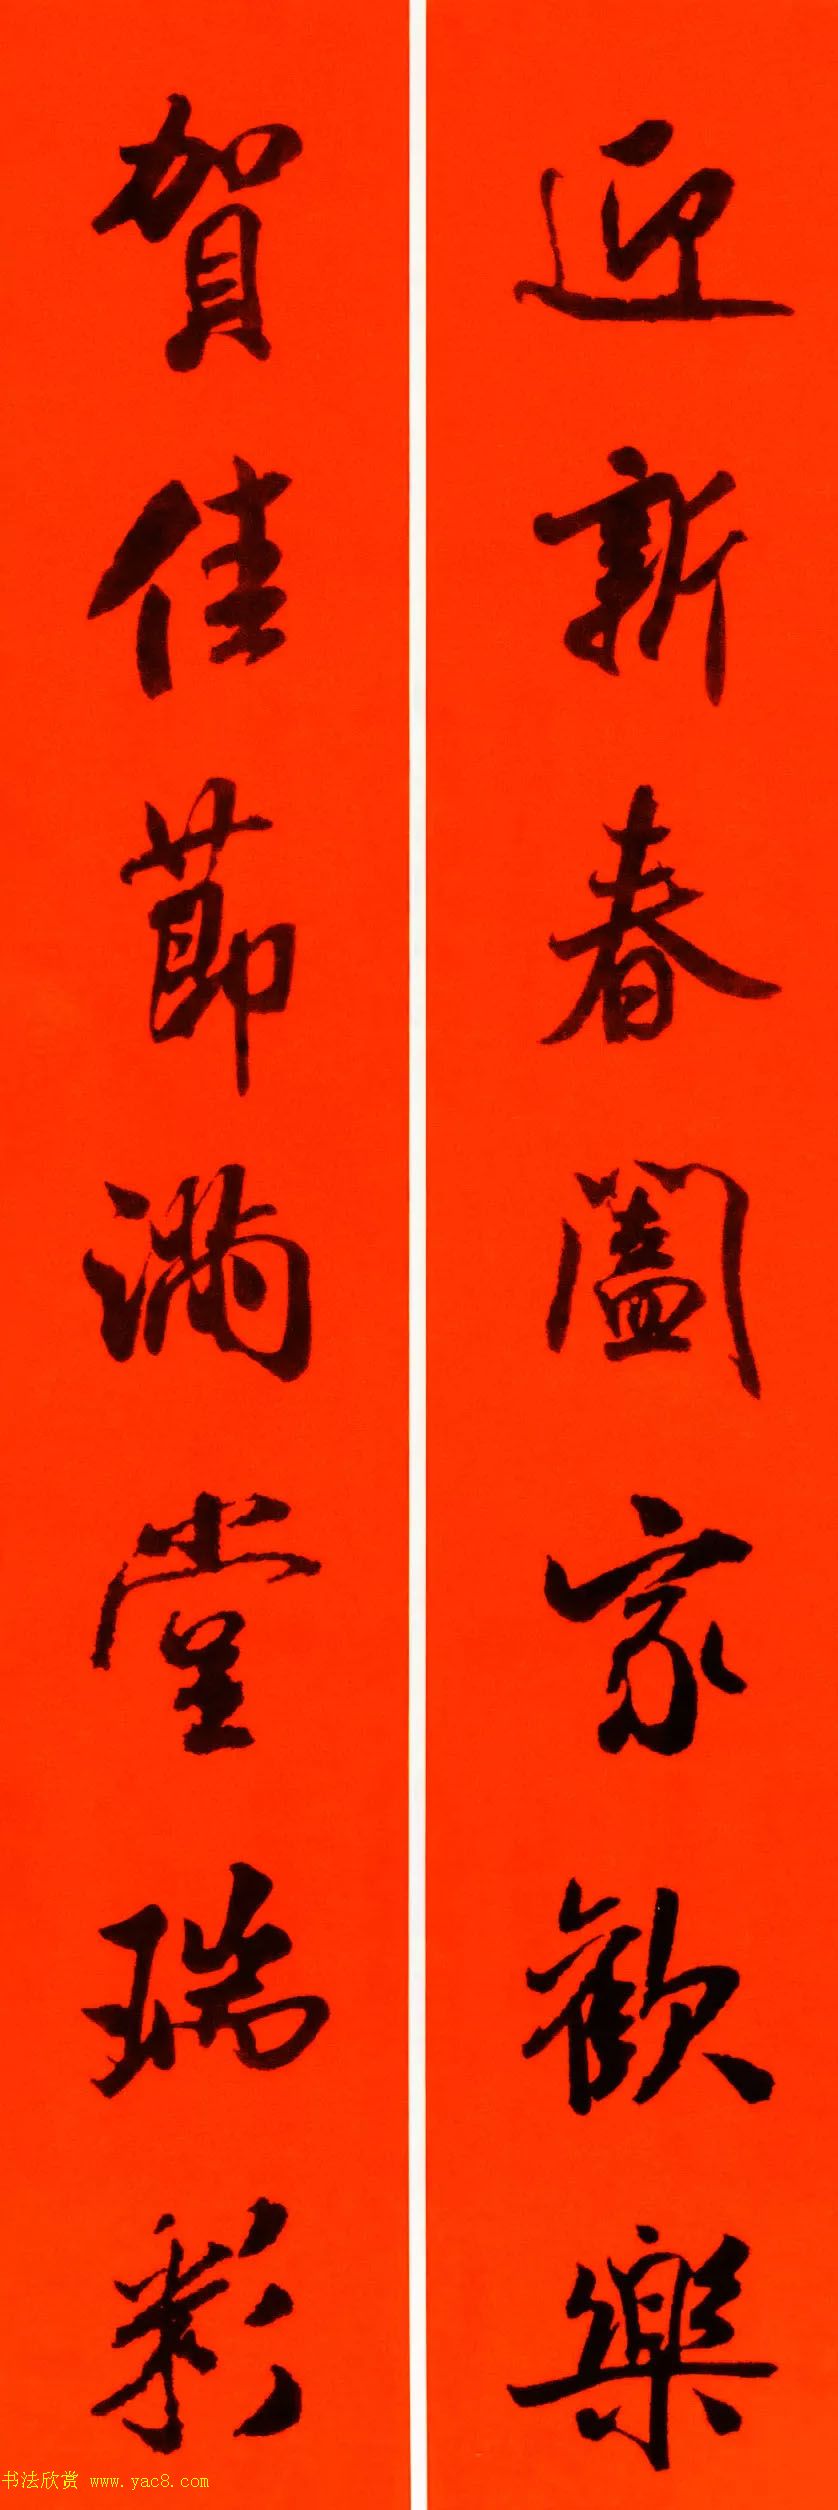 迎新春闔家歡樂
賀佳節滿堂瑞彩
书法欣赏 www.yac8.com